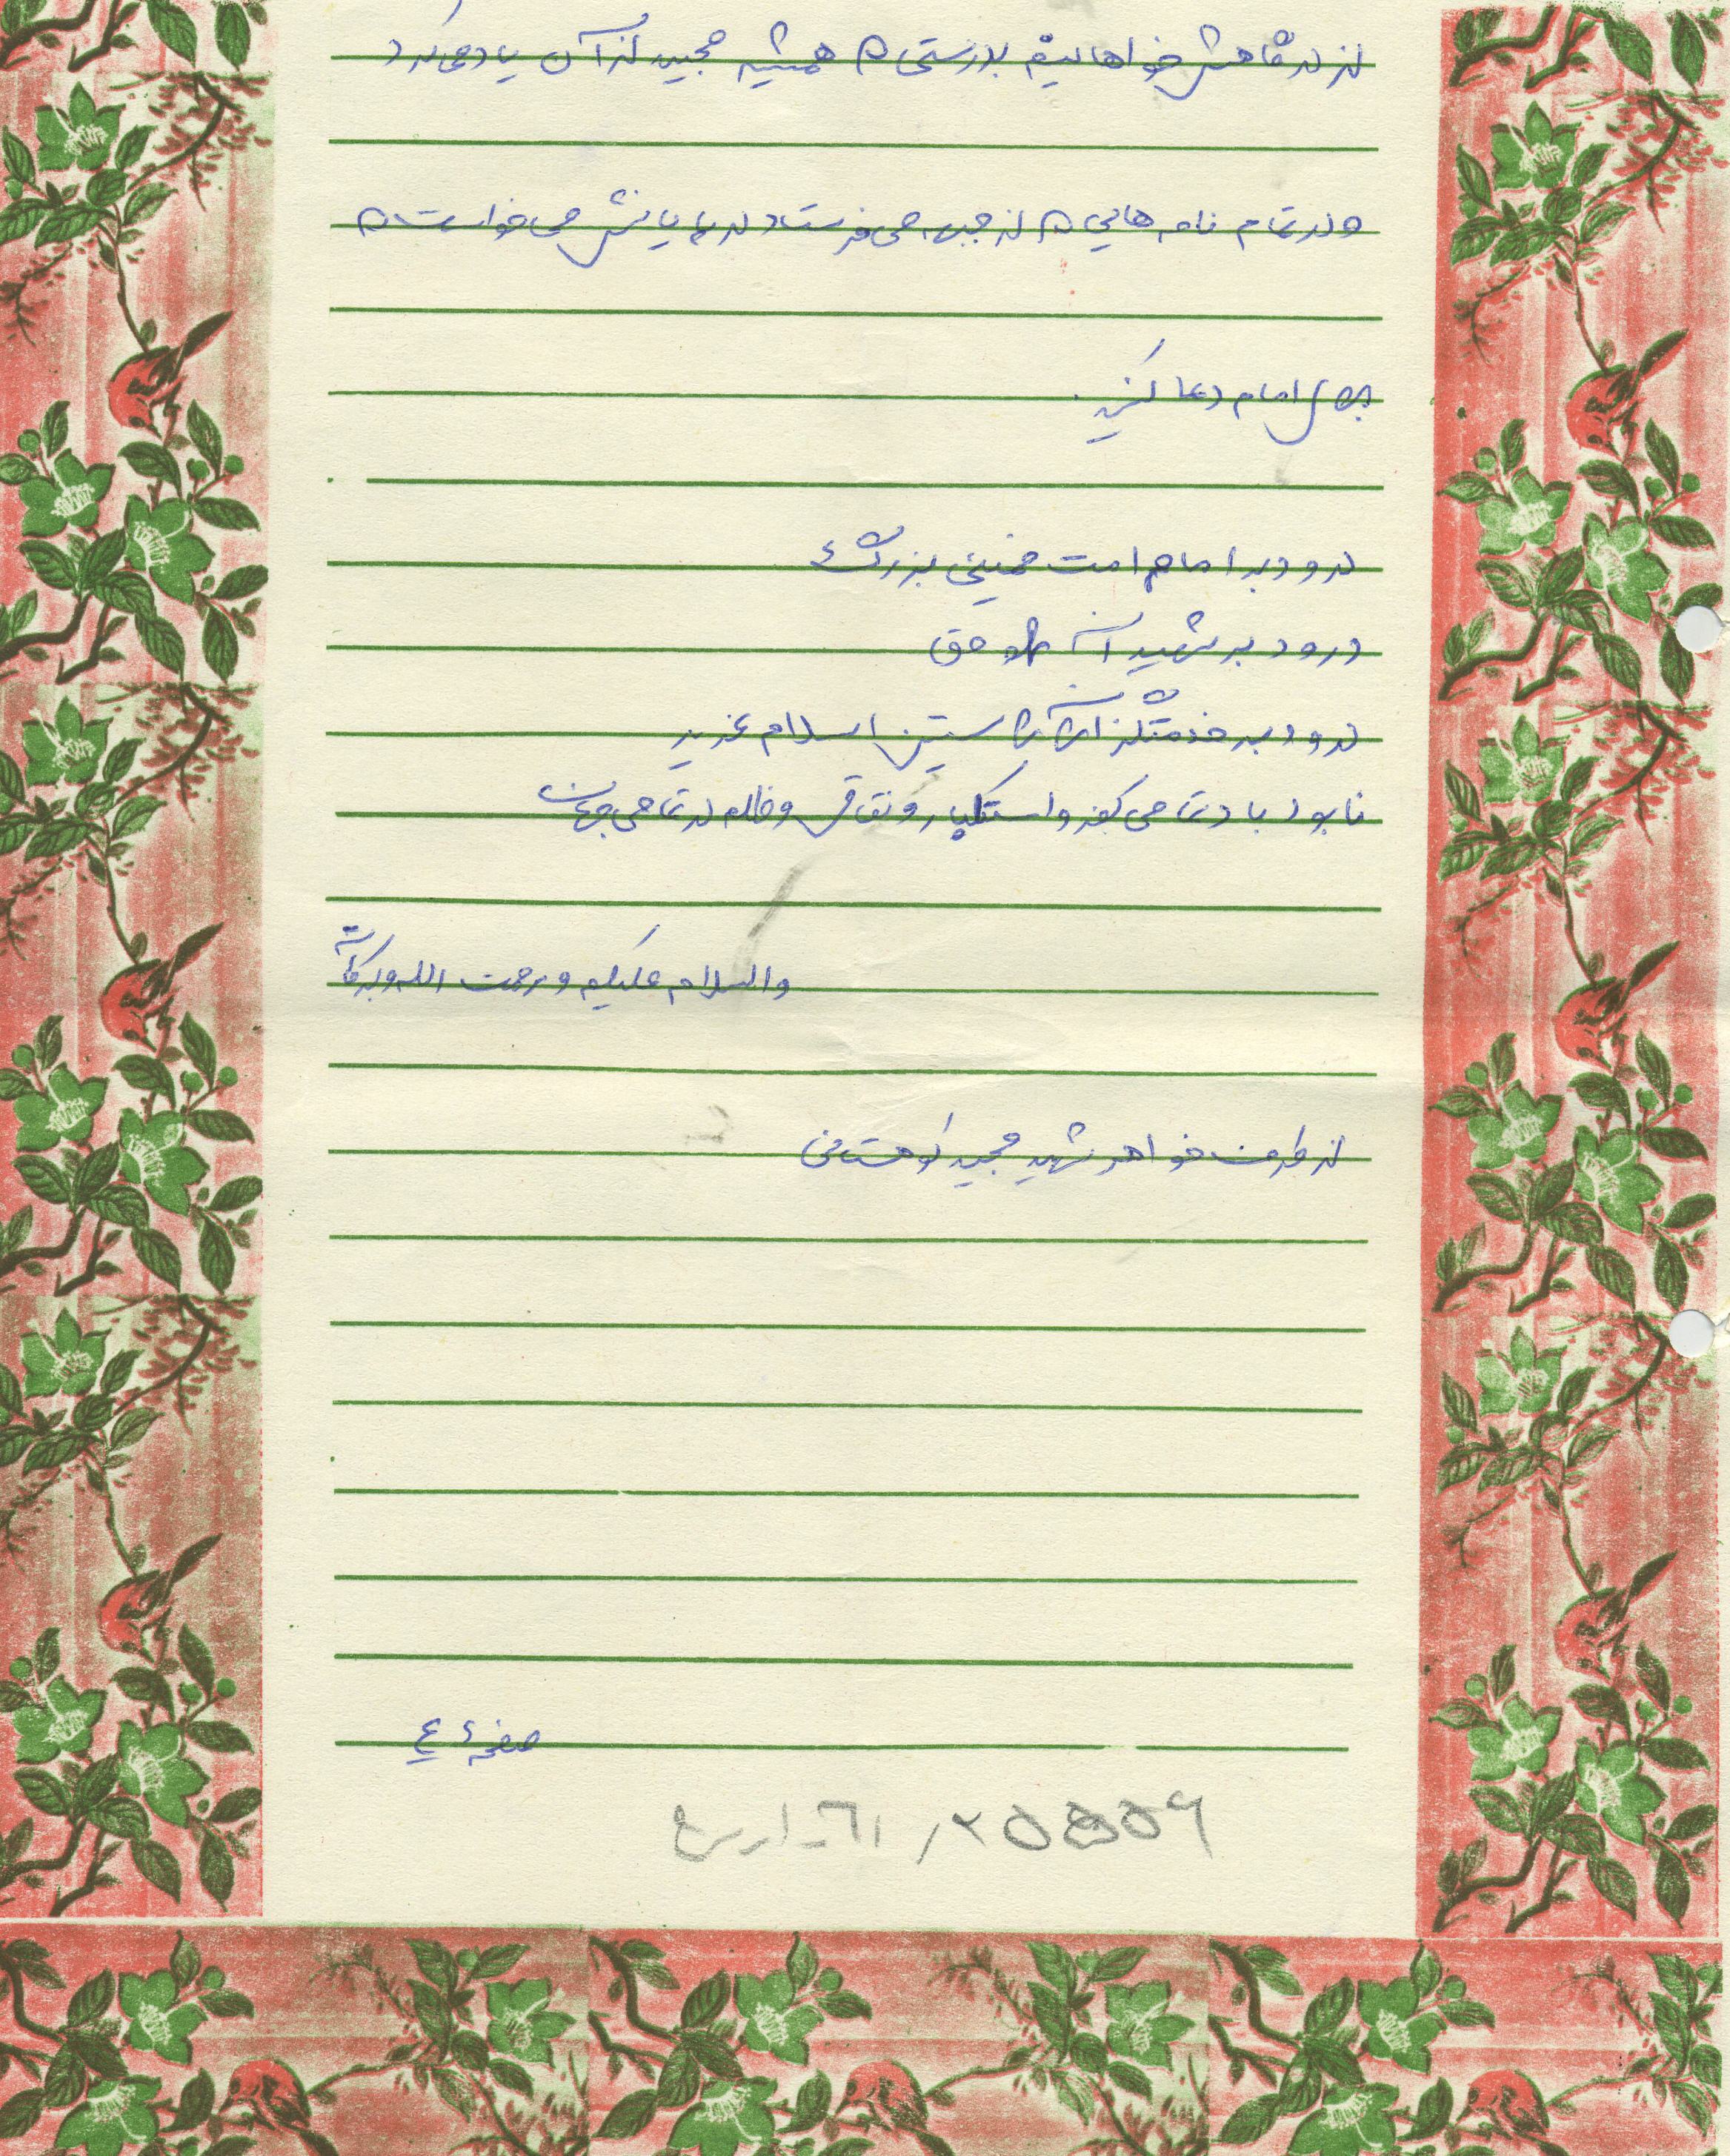 از درگاهش خواهانیم بدرستی که همیشه مجید از آن یاد می‌کرد
و در تمام نامه هایی که از جبهه می‌فرستاد در پایانش می‌خواست که
برای امام دعا کنید.
درود بر امام امت خمینی بزرگ
درود بر شهیدان راه حق
درود بر خدمتگزاران راستین اسلام عزیز
نابود باد تمامی کفر و استکبار و نفاق و ظلم در تمامی جهان
والسلام علیکم و رحمت الله و برکاته
از طرف خواهر شهید مجید کوهستانی
صفحهٔ ۴